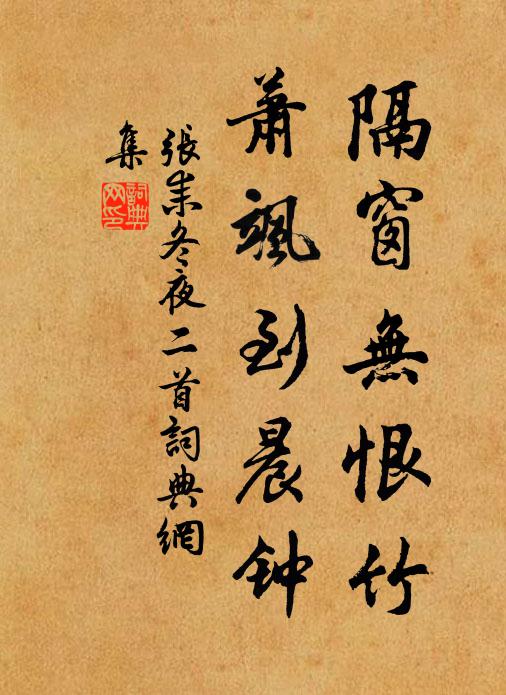 隔窗無恨竹
蕭颯到晨钟
張耒冬夜二首詞典網
集
詞典网印